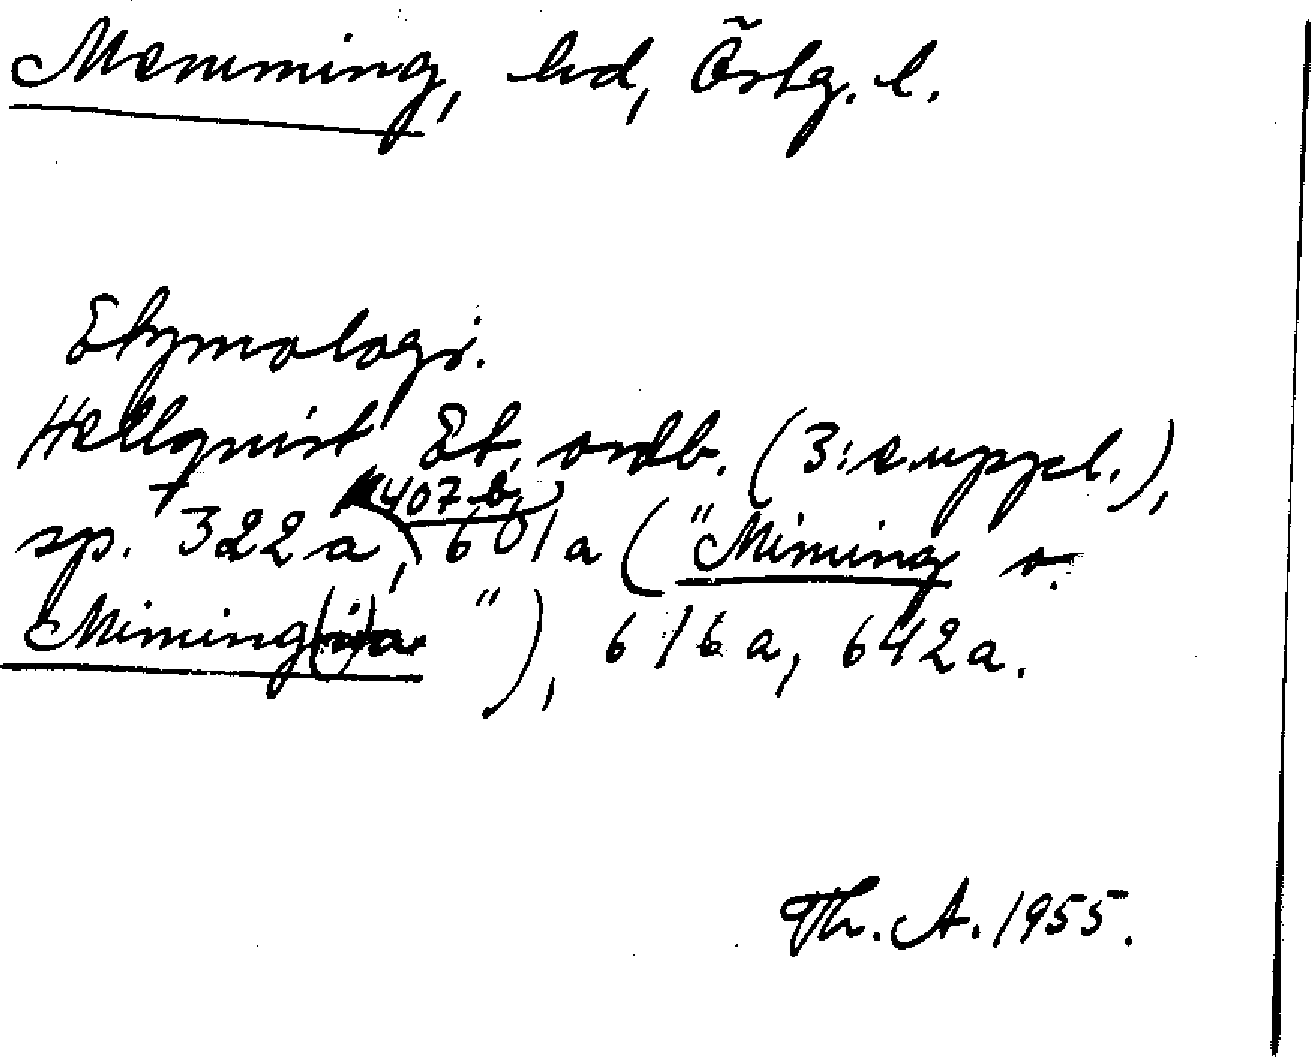 Memming, hd, Östg. l.
Etymologi.
Hellquist Et. ordb. (3:e uppl.),
sp. 322 a, 407 b, 601 a ("Miming o.
Miming(i)a "), 616 a, 642 a.
Th. A. 1955.